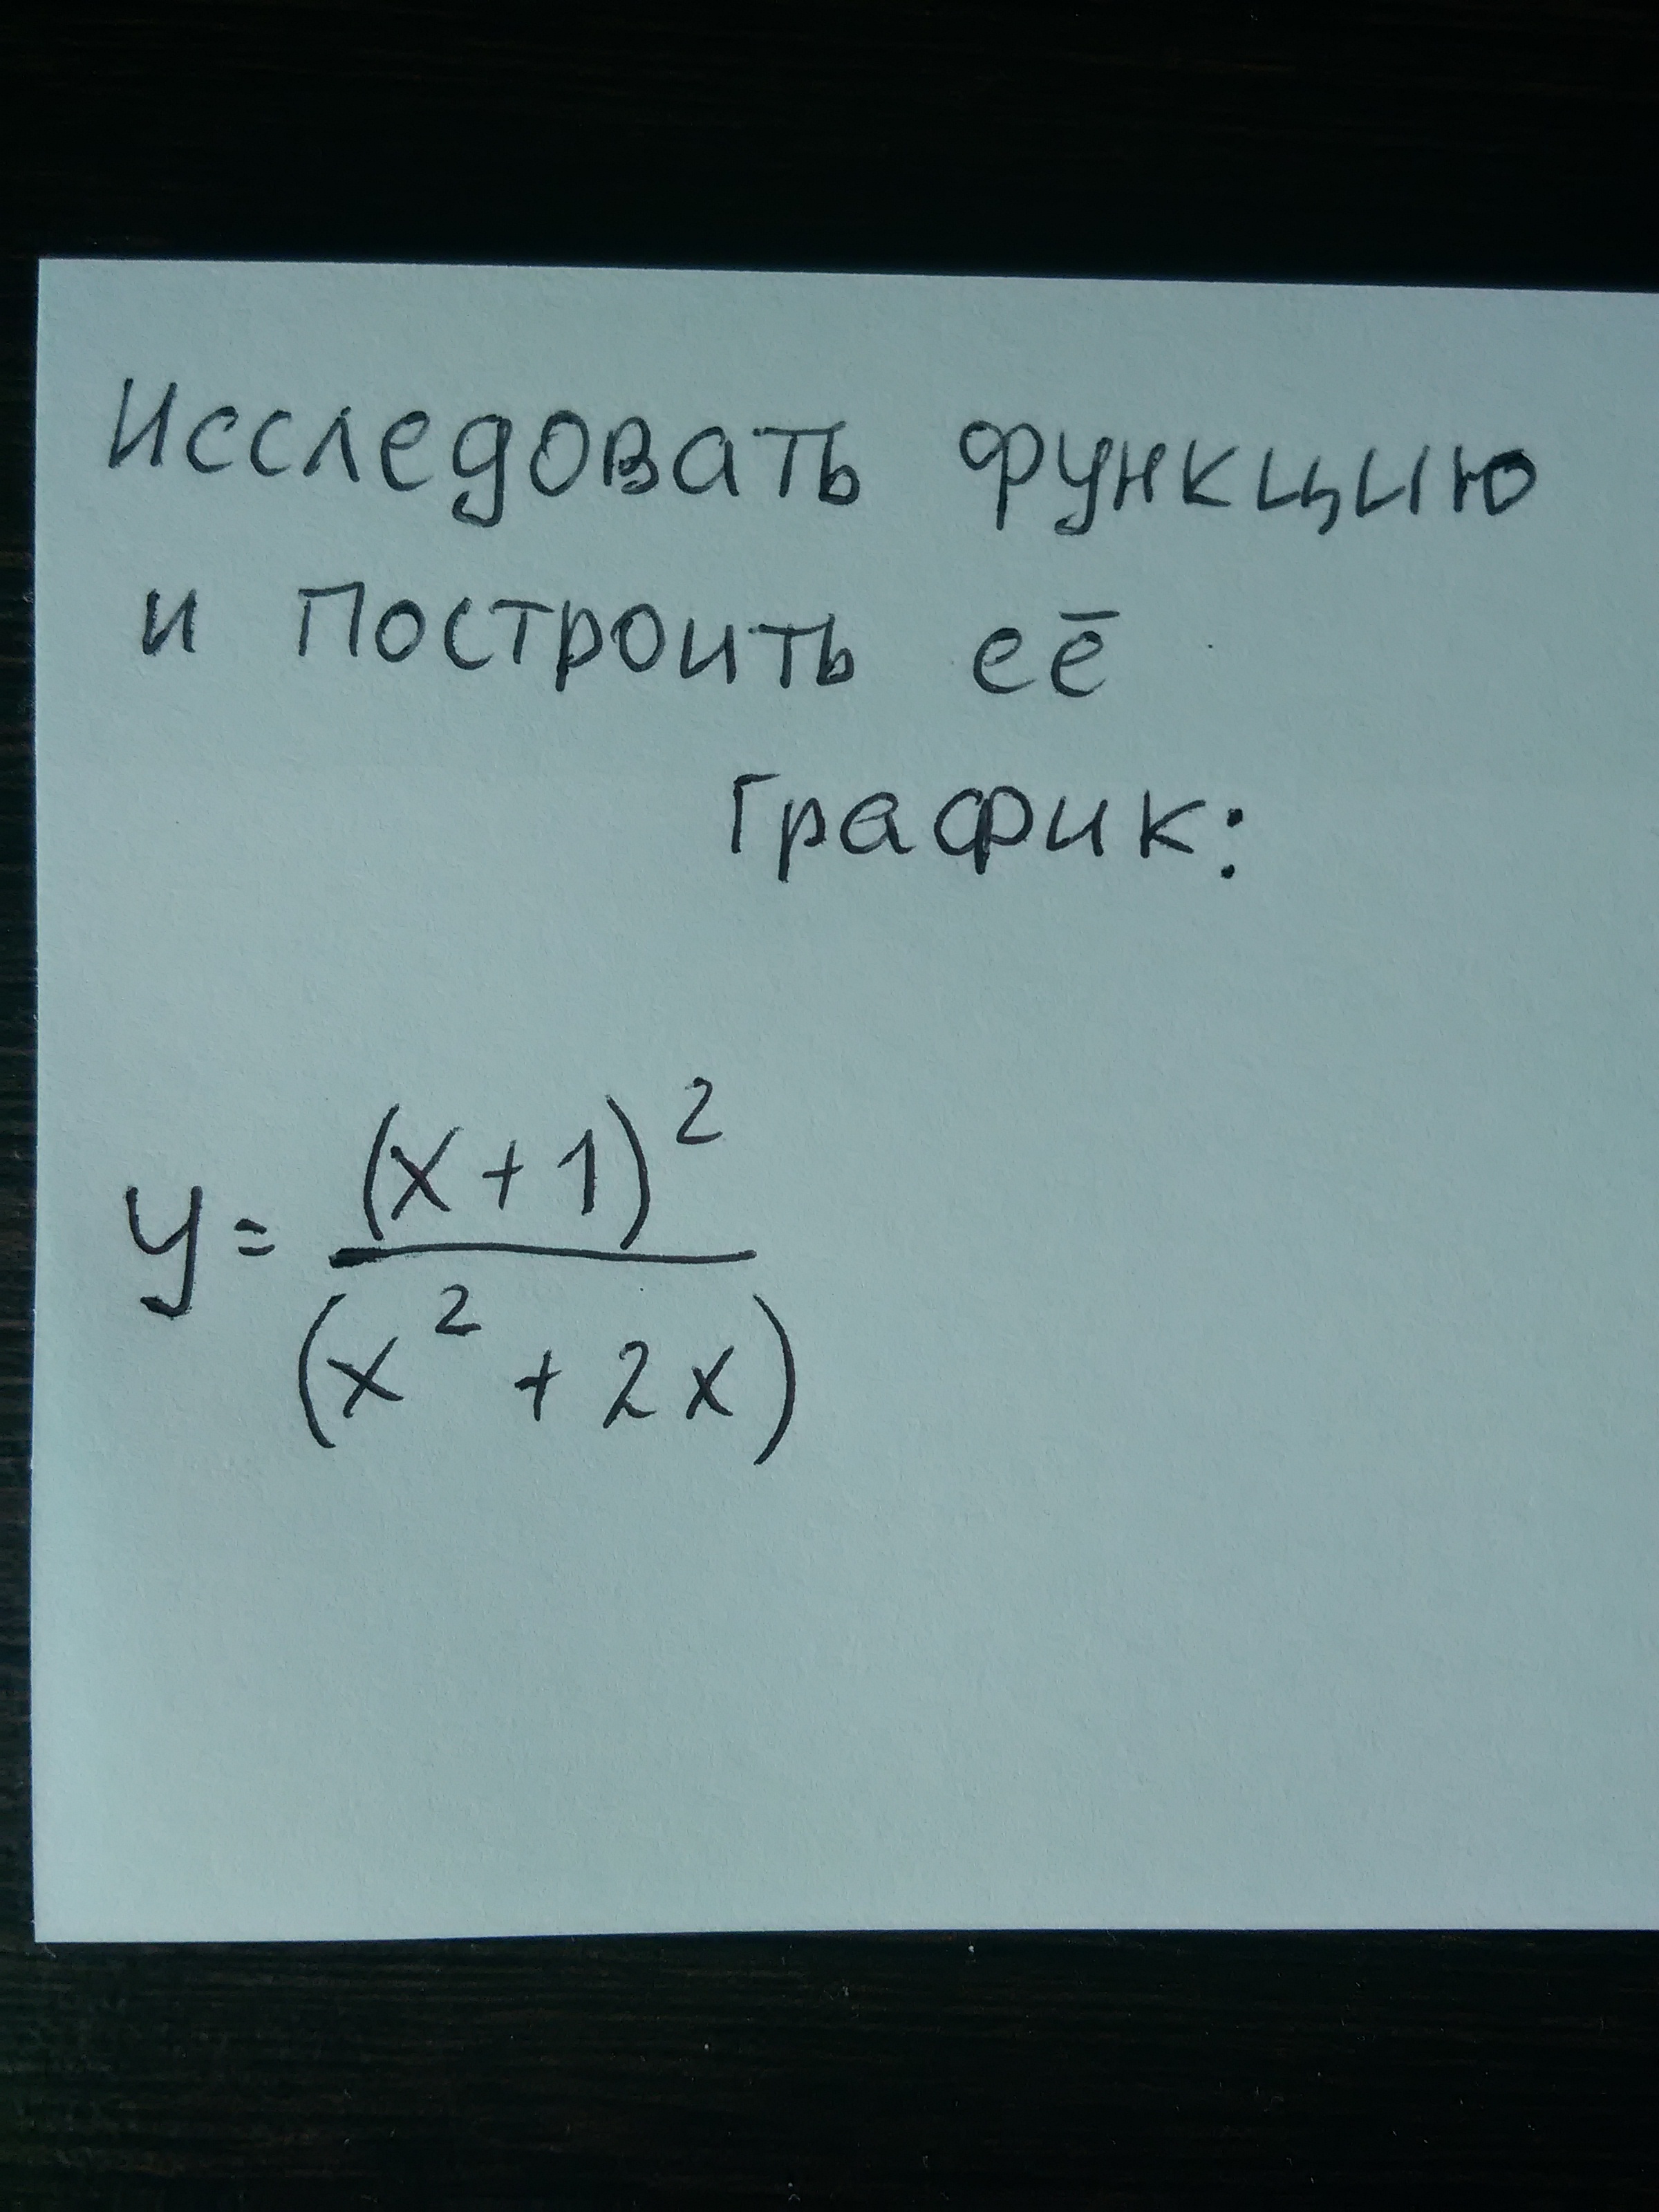 Исследовать функцию
и построить её
график:
y = (x+1)²
(x² + 2x)